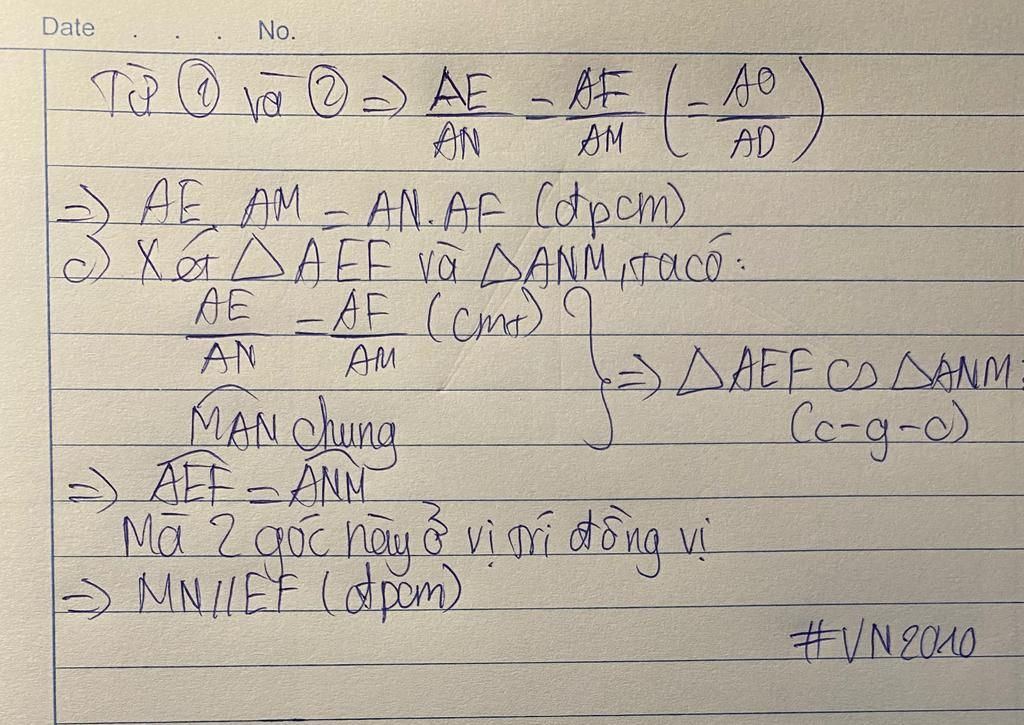 Date . . . No.
Từ ① và ② => AE/AN = AF/AM (= AO/AD)
=> AE.AM = AN.AF (đpcm)
c) Xét △AEF và △ANM, ta có:
AE/AN = AF/AM (cmt)
=> △AEF ∽ △ANM:
MAN chung
(c-g-c)
=> AEF = ANM
Mà 2 góc này ở vị trí đồng vị
=> MN//EF (đpcm)
#VN2010